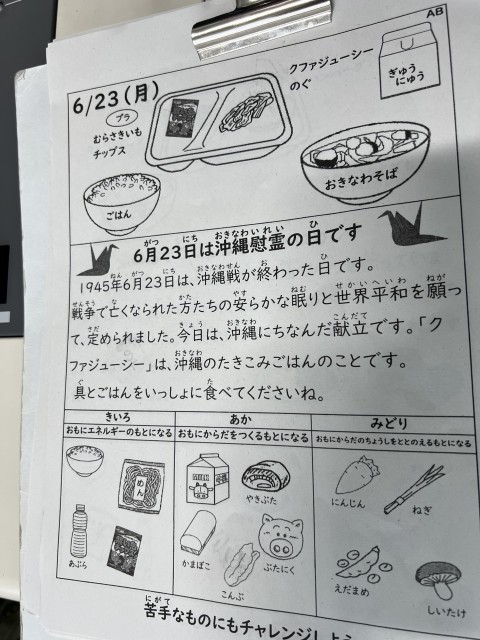 AB
6/23(月)
プラ
むらさきいも
チップス
クファジューシー
のぐ
ぎゅう
にゅう
ごはん
おきなわそば
がつ にち おきなわいれい ひ
6月23日は沖縄慰霊の日です
ねん がつ にち おきなわせん お ひ
1945年6月23日は、沖縄戦が終わった日です。
せんそう な かた やす ねむ せかいへいわ ねが
戦争で亡くなられた方たちの安らかな眠りと世界平和を願っ
さだ きょう おきなわ こんだて
て、定められました。今日は、沖縄にちなんだ献立です。「ク
おきなわ
ファジューシー」は、沖縄のたきこみごはんのことです。
ぐ た
具とごはんをいっしょに食べてくださいね。
きいろ あか みどり
おもにエネルギーのもとになる おもにからだをつくるもとになる おもにからだのちょうしをととのえるもとになる
めん
MILK
やきぶた
にんじん
ねぎ
あぶら
かまぼこ
こんぶ
ぶたにく
えだまめ
しいたけ
にがて
苦手なものにもチャレンジしよう